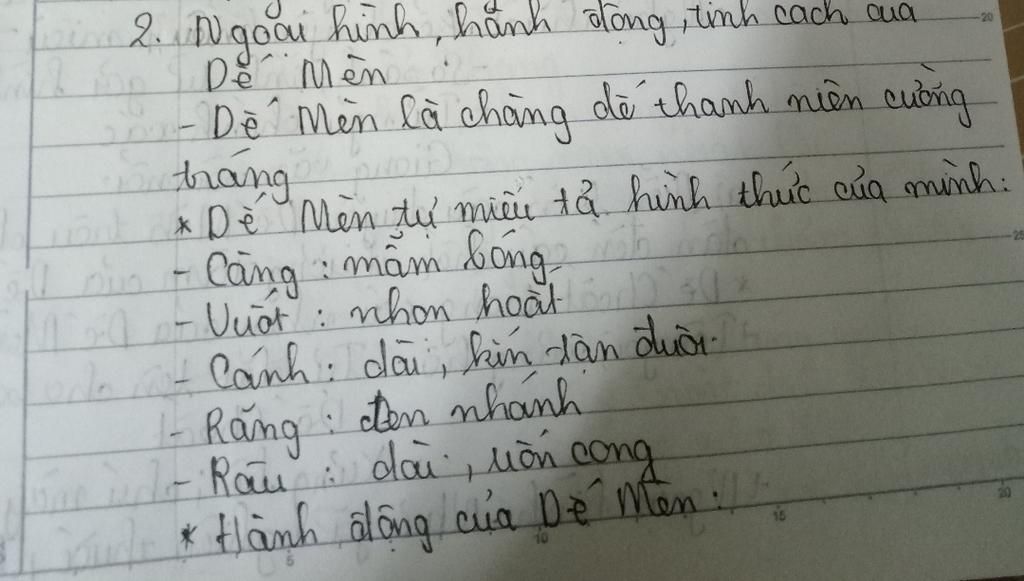 2. Ngoại hình, hành động, tính cách của
Dế Mèn
- Dế Mèn là chàng dế thanh niên cường
tráng
* Dế Mèn tự miêu tả hình thức của mình:
- Càng: mẫm bóng
- Vuốt: nhọn hoắt
- Cánh: dài, kín tận đuôi.
- Răng: đen nhánh
- Râu: dài, uốn cong
* Hành động của Dế Mèn:
20
25
5
10
15
20